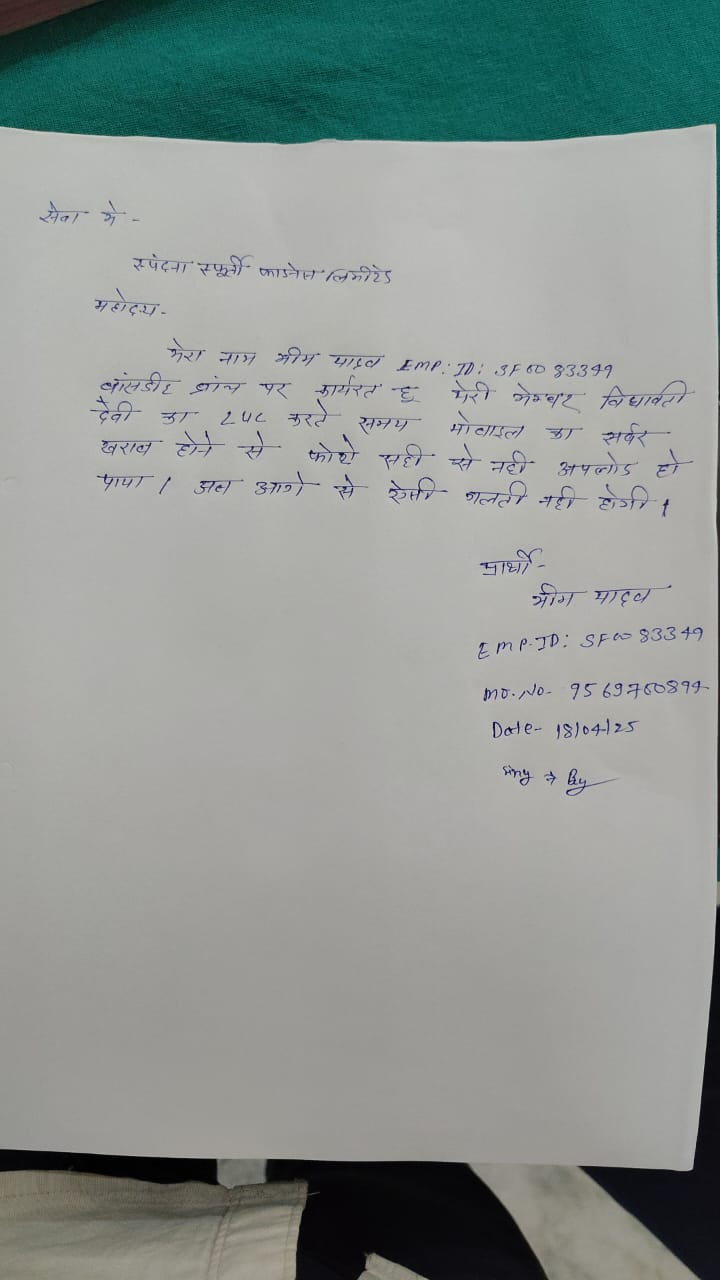 सेवा मे -
स्पंदना स्फूर्ती फाइनेंस लिमीटेड
महोदय -
मेरा नाम भीम यादव EMP: ID: SF0083349
बांसडीह ब्रांच पर कार्यरत हु मेरी मेम्बर विधावती
देवी का LUC करते समय मोबाइल का सर्वर
खराब होने से फोटो सही से नही अपलोड हो
पाया । अब आगे से ऐसी गलती नही होगी ।
प्रार्थी -
भीम यादव
EMP. ID: SF0083349
MO. No - 9569760894
Date - 18/04/25